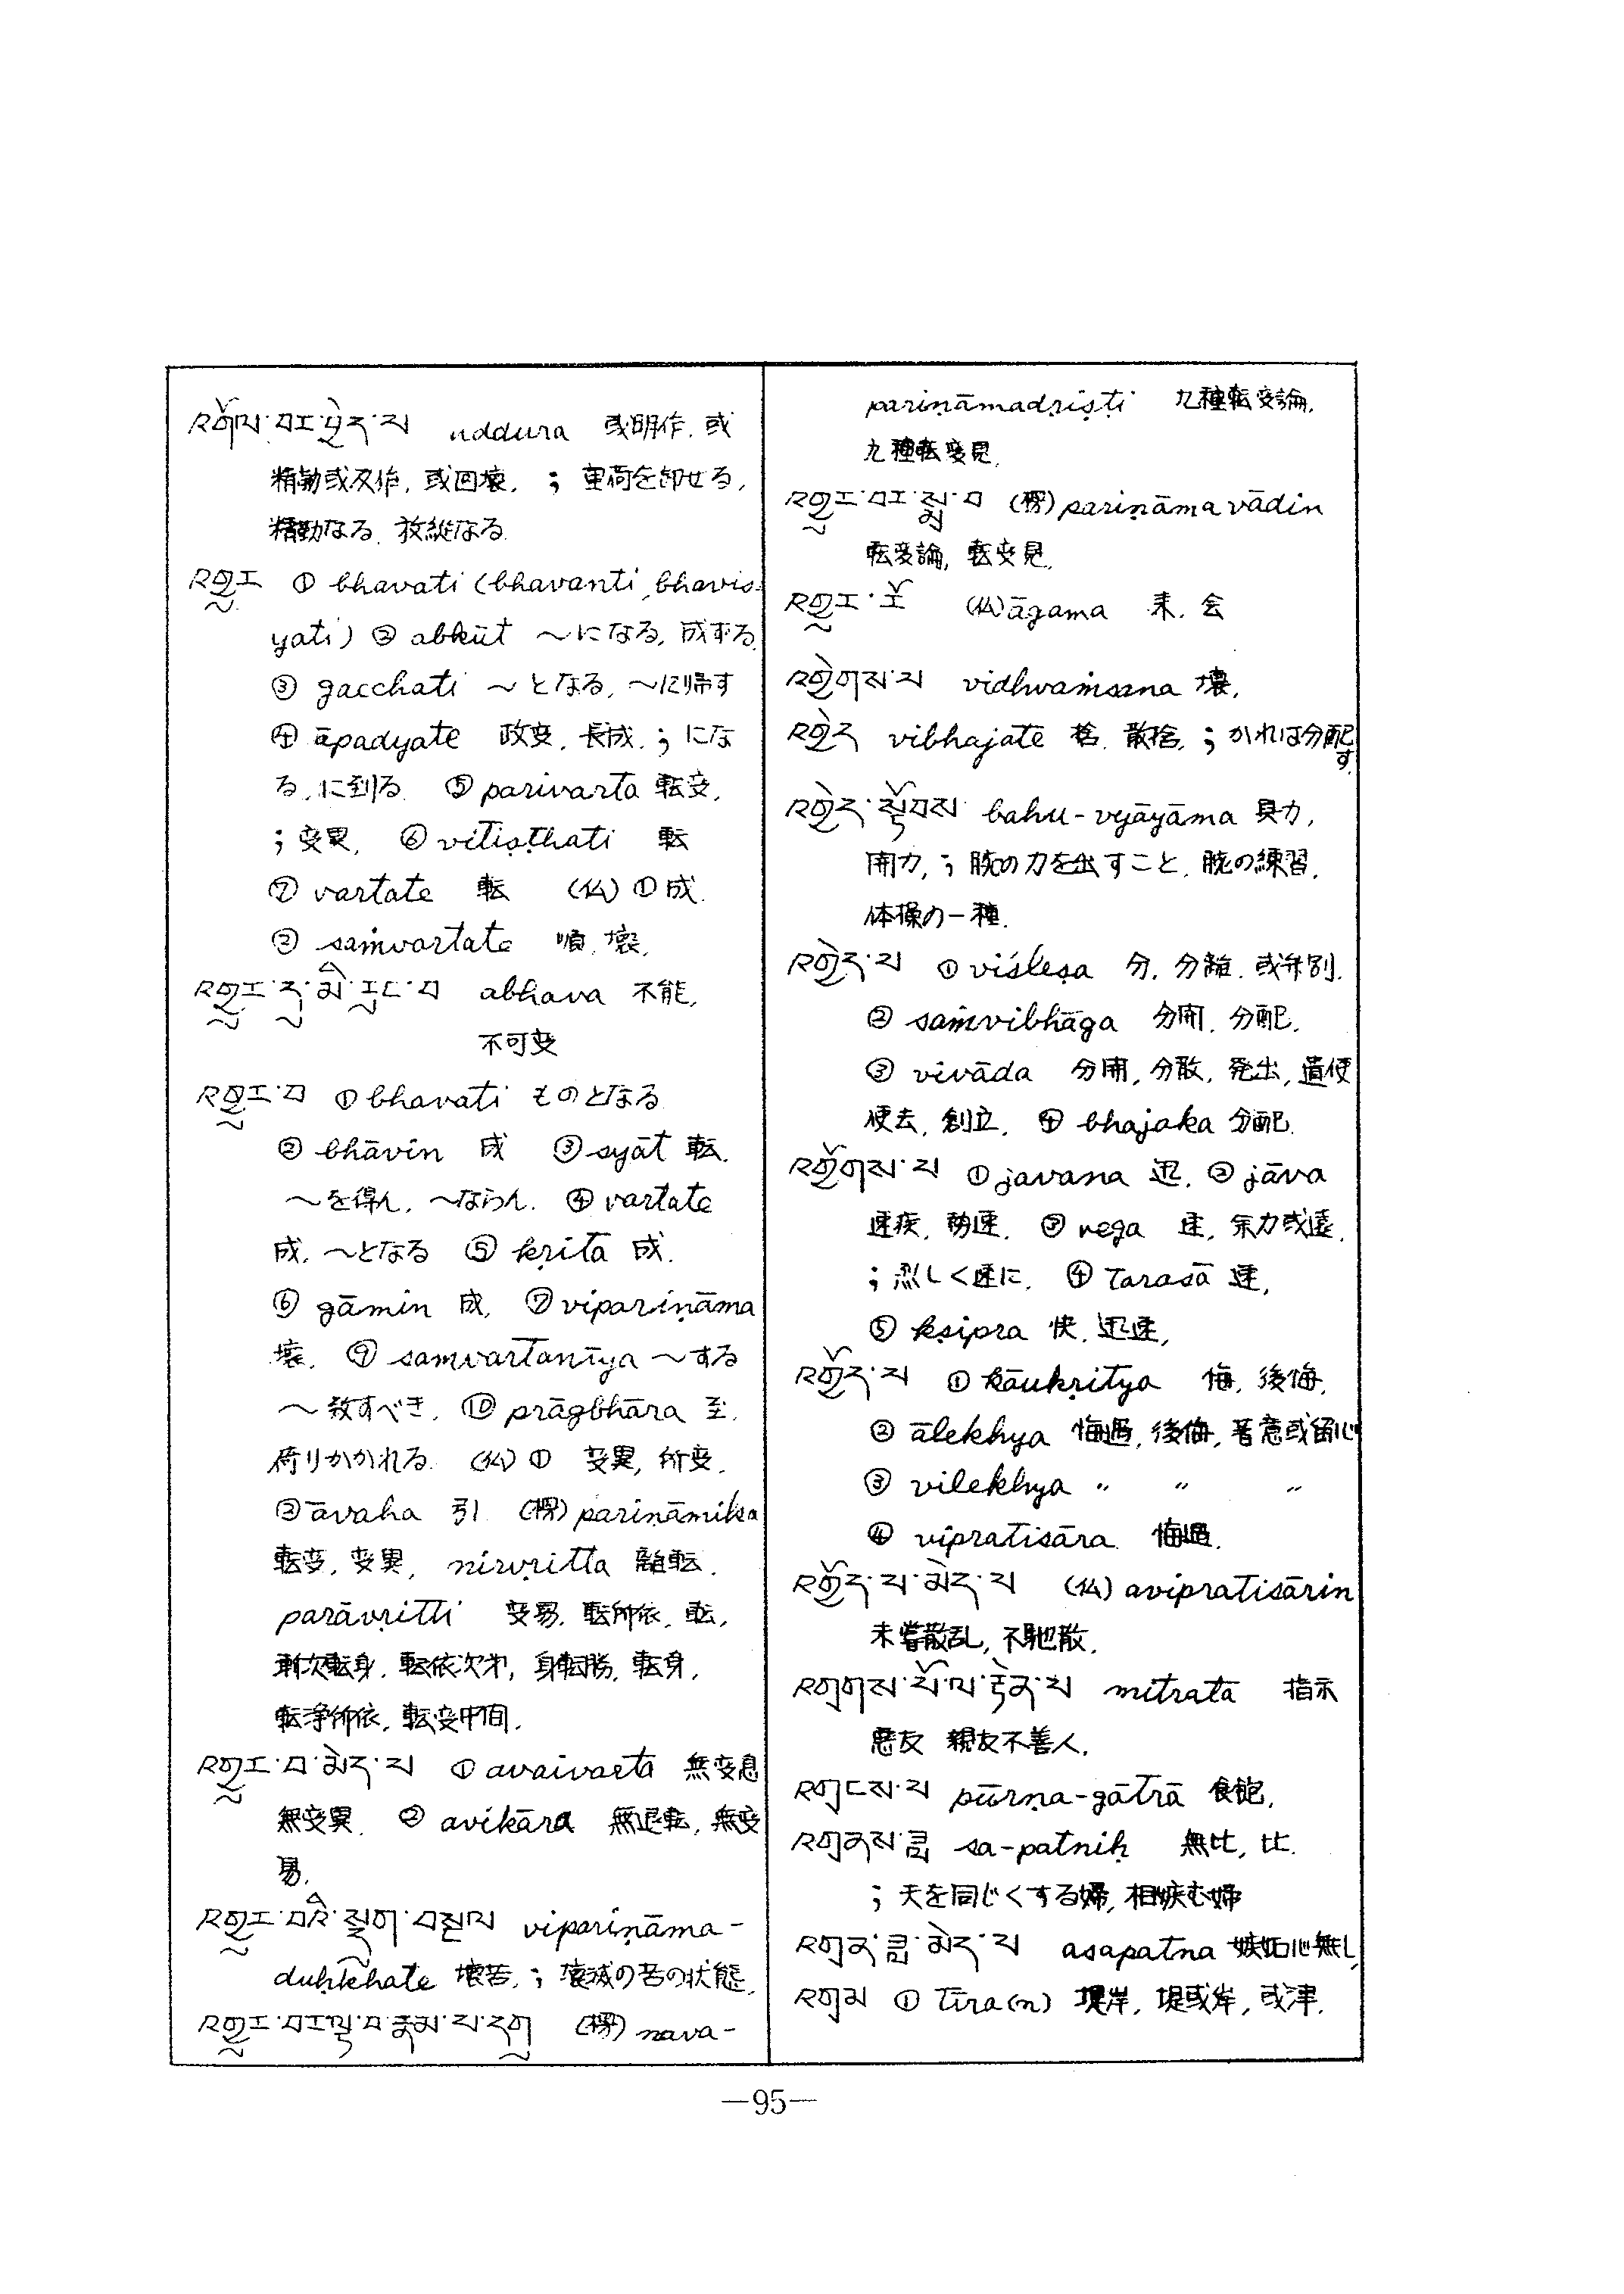 འགོལ་བར་བྱེད་པ uddura 或明作, 或
精勤或及作, 或回壊, ; 重荷を卸せる,
精勤なる, 放縦なる.
འགྱུར ① bhavati (bhavanti, bhavis-
yati) ② abhūt ～になる, 成ずる.
③ gacchati ～となる, ～に帰す
④ āpadyate 改変, 長成, ; にな
る, に到る. ⑤ parivarta 転変,
; 変異, ⑥ vitiṣṭhati 転
⑦ vartate 転 (仏) ① 成.
② saṁvartate 順, 壊,
འགྱུར་དུ་མི་རུང་བ abhava 不能,
不可変
འགྱུར་བ ① bhavati ものとなる
② bhāvin 成 ③ syāt 転.
～を得ん, ～ならん. ④ vartate
成, ～となる ⑤ kṛita 成.
⑥ gāmin 成, ⑦ vipariṇāma
壊. ⑨ samvartanīya ～する
～致すべき, ⑩ prāgbhāra 至.
倚りかかれる. (仏) ① 変異, 所変.
② āvaha 引. (楞) pariṇāmika
転変, 変異, nirvṛitta 離転.
parāvṛitti 変易, 転所依, 転,
漸次転身, 転依次第, 身転勝, 転身,
転浄所依, 転変中間,
འགྱུར་བ་མེད་པ ① avaivarta 無変息
無変異. ② avikāra 無退転, 無変
易.
འགྱུར་བའི་སྡུག་བསྔལ vipariṇāma-
duḥkhate 壊苦, ; 壊滅の苦の状態.
འགྱུར་བར་ལྟ་བ་རྣམ་པ་དགུ (楞) nava-
parināmadṛiṣṭi 九種転変論,
九種転変見.
འགྱུར་བར་སྨྲ་བ (楞) pariṇāma vādin
転変論, 転変見.
འགྱུར་རོ (仏) āgama 来, 会
འགྱེགས་པ vidhwaṁsana 壊,
འགྱེད vibhajate 捨, 散捨, ; かれは分配
す.
འགྱེད་སྟོབས bahu-vyāyāma 具力,
開力, ; 腕の力を出すこと, 腕の練習,
体操の一種.
འགྱེད་པ ① viśleṣa 分, 分離, 或弁別.
② saṁvibhāga 分開, 分配.
③ vivāda 分開, 分散, 発出, 遣使
使去, 創立, ④ bhajaka 分配.
འགྱོགས་པ ① javana 迅, ② jāva
速疾, 勢速, ③ vega 速, 気力或遠,
; 烈しく速に, ④ tarasā 速,
⑤ kṣipra 快, 迅速,
འགྱོད་པ ① kāukṛitya 悔, 後悔,
② ālekhya 悔過, 後悔, 著意或留心
③ vilekhya 〃 〃 〃
④ vipratisāra. 悔過.
འགྱོད་པ་མེད་པ (仏) avipratisārin
未嘗散乱, 不馳散.
འགྲགས་པོ་ལ་རྟེན་པ mitratā 指示
悪友 親友不善人.
འགྲངས་པ pūrṇa-gātrā 食飽,
འགྲནས་ཟླ sa-patniḥ 無比, 比.
; 夫を同じくする婦, 相嫉む婦
འགྲན་ཟླ་མེད་པ asapatna 嫉妬心無し,
འགྲམ ① tīra(n) 堤岸, 堤或岸, 或津.
—95—